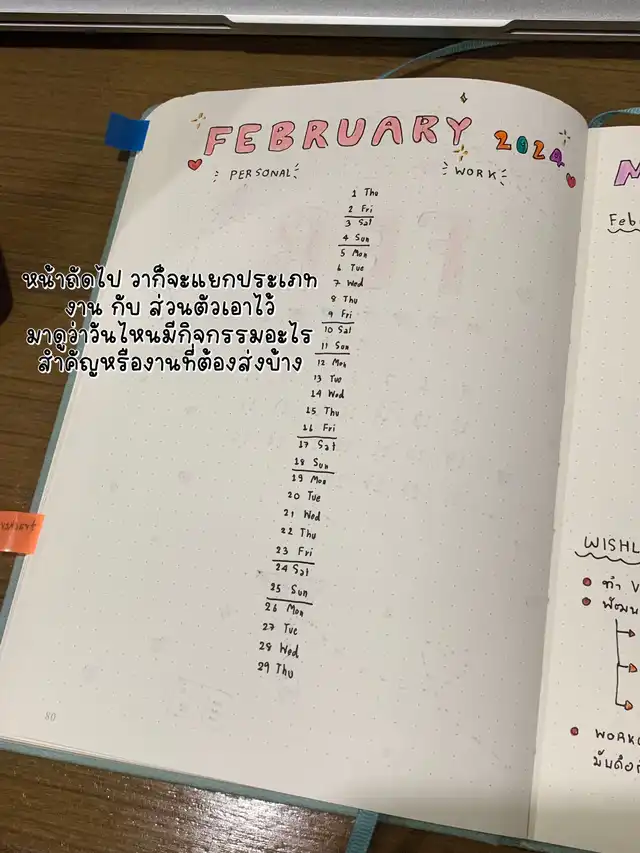 FEBRUARY 2024
PERSONAL
WORK
1 Thu
2 Fri
3 Sat
4 Sun
5 Mon
6 Tue
7 Wed
8 Thu
9 Fri
10 Sat
11 Sun
12 Mon
13 Tue
14 Wed
15 Thu
16 Fri
17 Sat
18 Sun
19 Mon
20 Tue
21 Wed
22 Thu
23 Fri
24 Sat
25 Sun
26 Mon
27 Tue
28 Wed
29 Thu
80
หน้าถัดไป วาก็จะแยกประเภท
งาน กับ ส่วนตัวเอาไว้
มาดูว่าวันไหนมีกิจกรรมอะไร
สำคัญหรืองานที่ต้องส่งบ้าง
M
Feb
WISHL
ทำ V
พัฒน
WORK